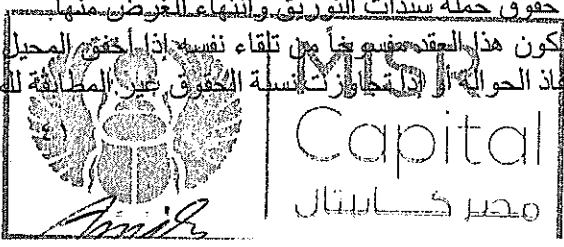 حقوق حملة سندات التوريق وانتهاء الغرض منها
يكون هذا العقد مفسوخاً من تلقاء نفسه إذا أخفق المحيل
نفاذ الحوالة أو إذا تجاوزت نسبة الحقوق غير المطابقة
MISR
Capital
مصر كابيتال